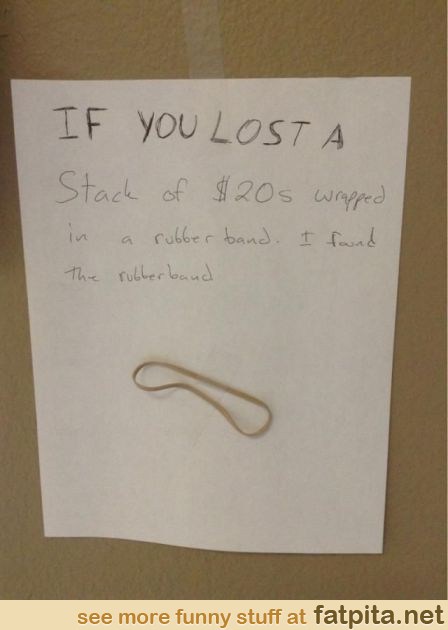 IF YOU LOST A
Stack of $20s wrapped
in a rubber band. I found
the rubberband
see more funny stuff at fatpita.net